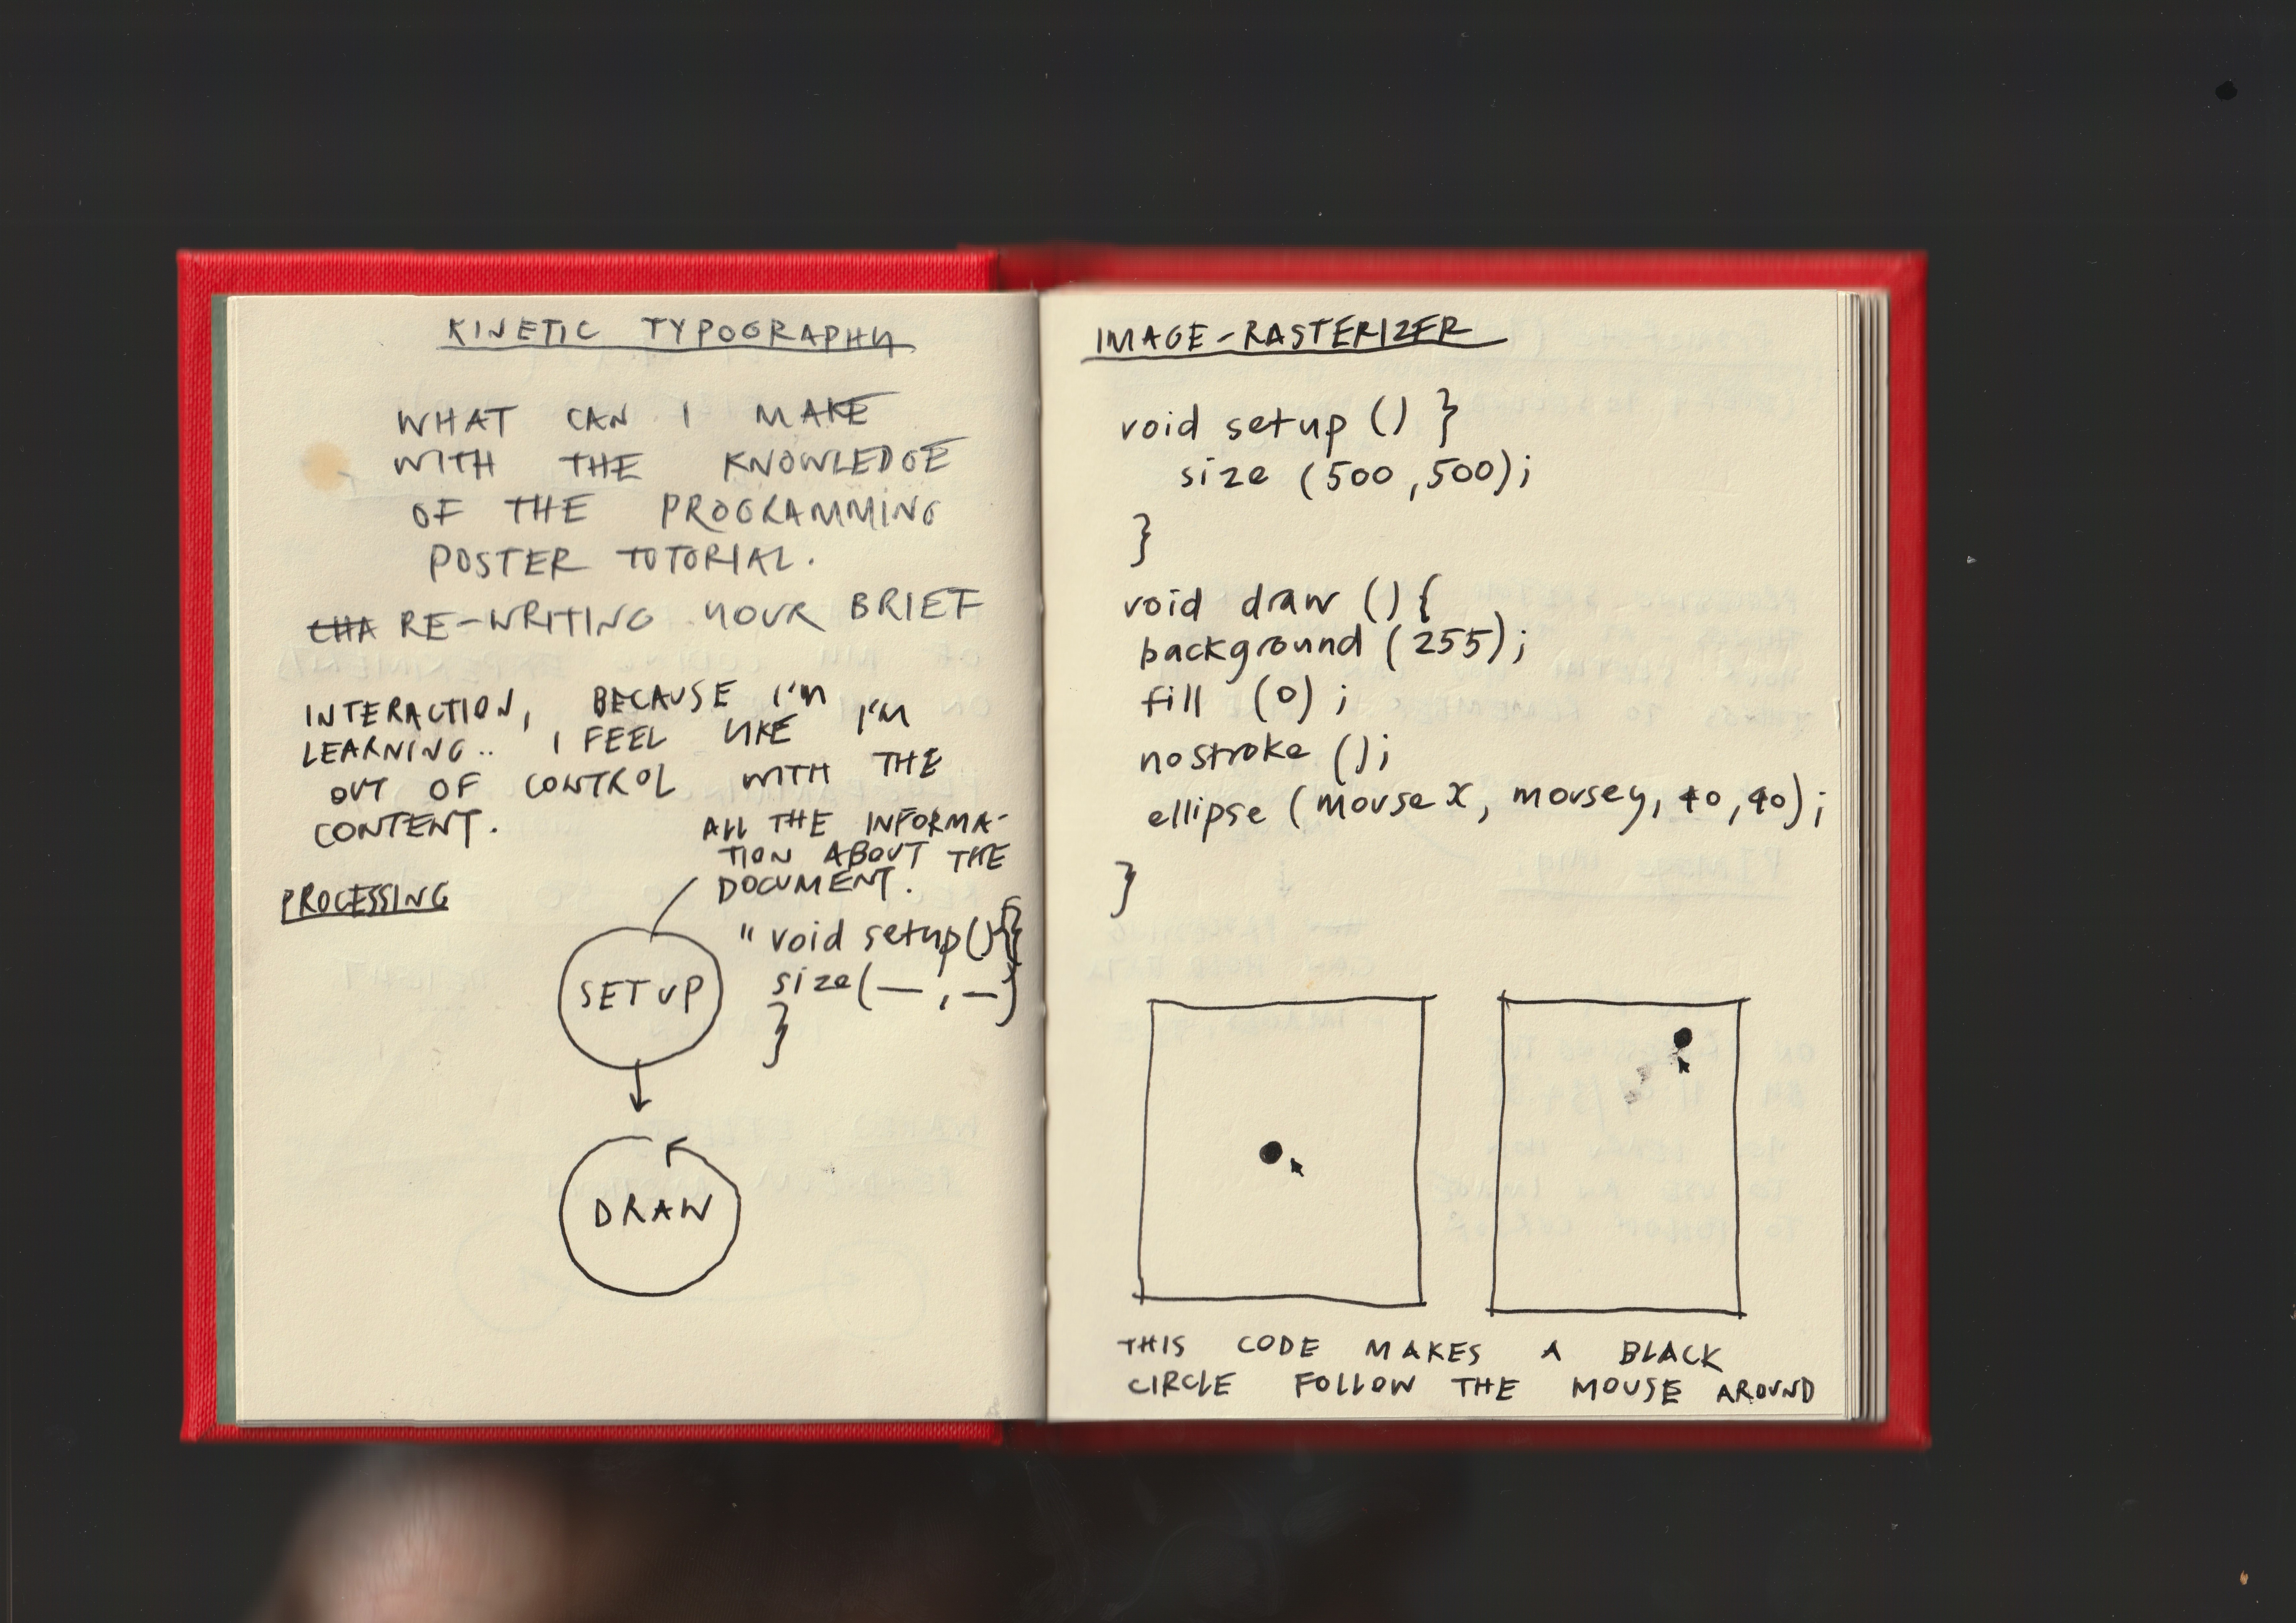 KINETIC TYPOGRAPHY
WHAT CAN I MAKE
WITH THE KNOWLEDGE
OF THE PROGRAMMING
POSTER TUTORIAL.
CHA RE-WRITING YOUR BRIEF
INTERACTION, BECAUSE I'M
LEARNING.. I FEEL LIKE I'M
OUT OF CONTROL WITH THE
CONTENT.
ALL THE INFORMA-
TION ABOUT THE
DOCUMENT.
PROCESSING
" void setup(){
size(— , —)
}
SETUP
DRAW
IMAGE-RASTERIZER
void setup () }
size (500,500);
}
void draw () {
background (255);
fill (0) ;
nostroke ();
ellipse (mouse X, mousey, 40, 40);
}
THIS CODE MAKES A BLACK
CIRCLE FOLLOW THE MOUSE AROUND